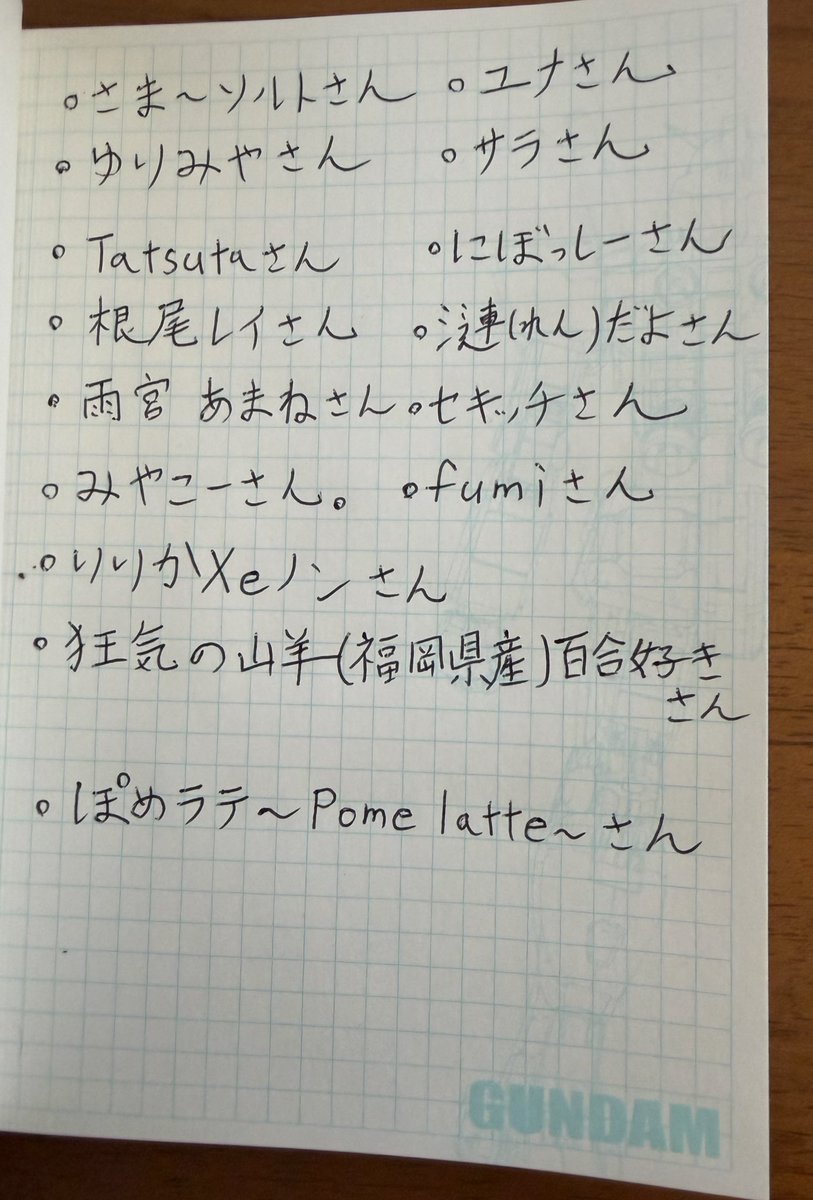 ○さま〜ソルトさん ○ユナさん
○ゆりみやさん ○サラさん
○Tatsutaさん ○にぼっしーさん
○根尾レイさん ○漣(れん)だよさん
○雨宮 あまねさん ○セキッチさん
○みやこーさん。 ○fumiさん
○りりかXeノンさん
○狂気の山羊(福岡県産)百合好き
さん
○ぽめラテ〜Pome latte〜さん
GUNDAM